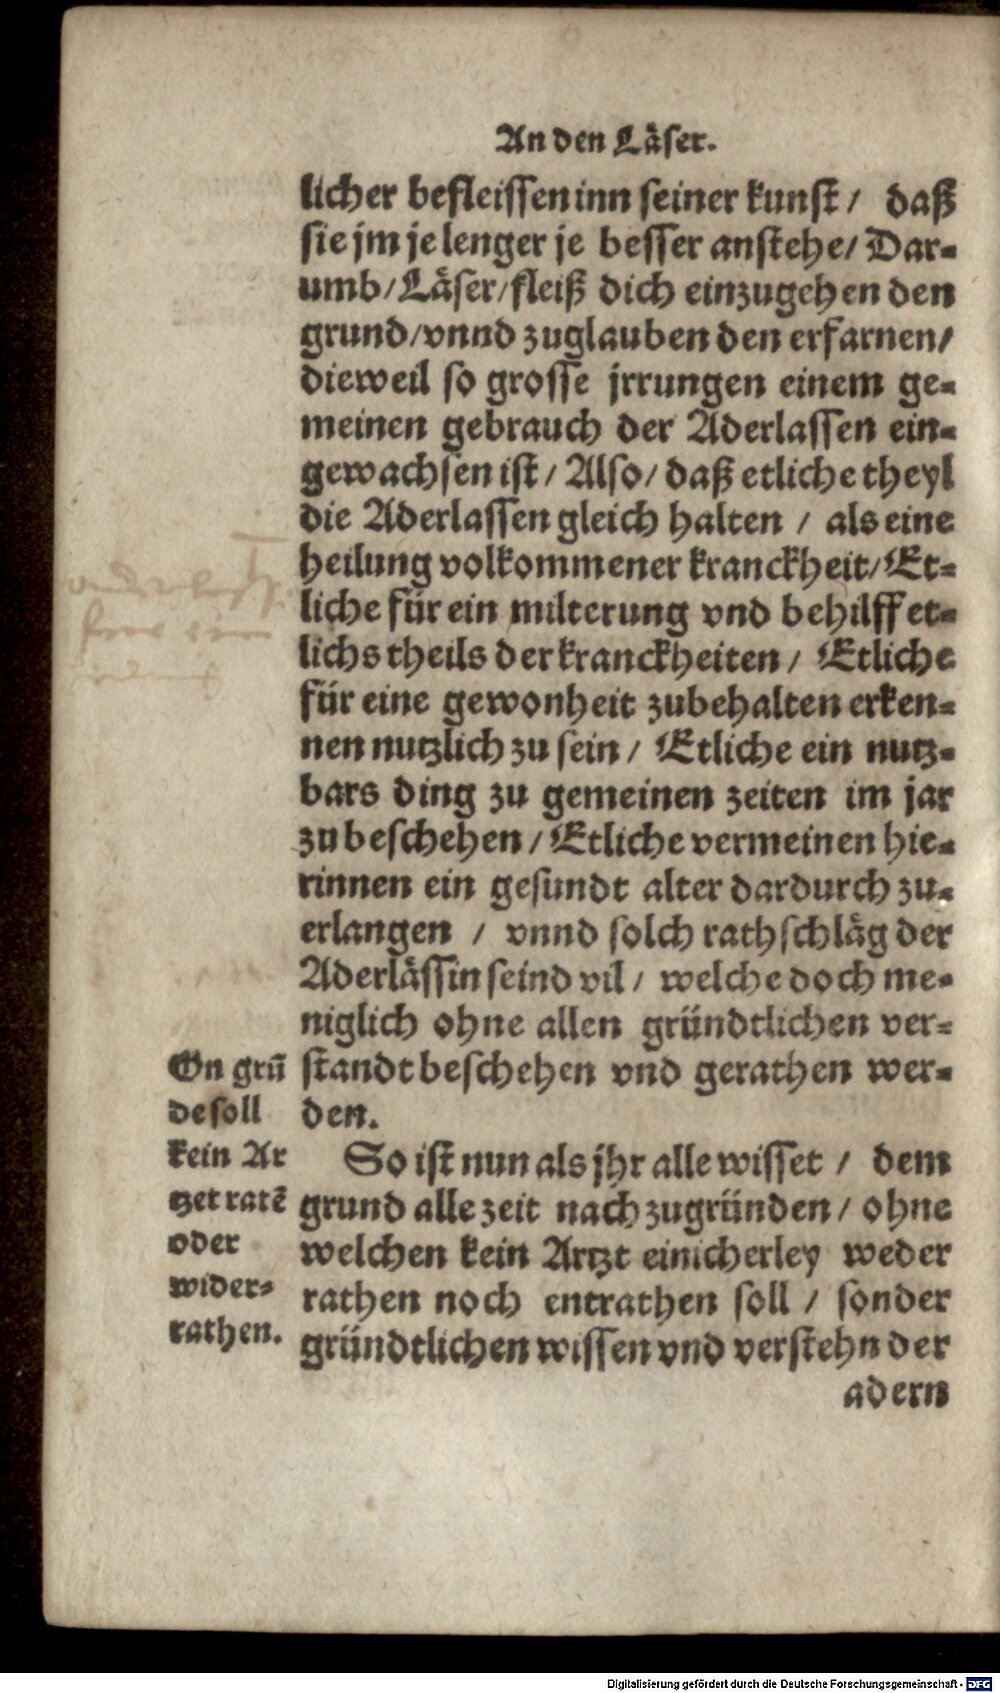 An den Läser.
licher befleissen inn seiner kunst / daß
sie jm je lenger je besser anstehe / Dar-
umb / Läser / fleiß dich einzugehen den
grund / vnnd zuglauben den erfarnen /
dieweil so grosse jrrungen einem ge-
meinen gebrauch der Aderlassen ein-
gewachsen ist / Also / daß etliche theyl
die Aderlassen gleich halten / als eine
heilung volkommener kranckheit / Et-
liche für ein milterung vnd behilff et-
lichs theils der kranckheiten / Etliche
für eine gewonheit zubehalten erken-
nen nutzlich zu sein / Etliche ein nutz-
bars ding zu gemeinen zeiten im jar
zu beschehen / Etliche vermeinen hie-
rinnen ein gesundt alter dardurch zu-
erlangen / vnnd solch rathschläg der
Aderlässin seind vil / welche doch me-
niglich ohne allen gründtlichen ver-
standt beschehen vnd gerathen wer-
den.
On grũ
de soll
kein Ar
tzet ratẽ
oder
wider-
rathen.
So ist nun als jhr alle wisset / dem
grund alle zeit nach zugründen / ohne
welchen kein Artzt einicherley weder
rathen noch entrathen soll / sonder
gründtlichen wissen vnd verstehn der
adern
Digitalisierung gefördert durch die Deutsche Forschungsgemeinschaft - DFG